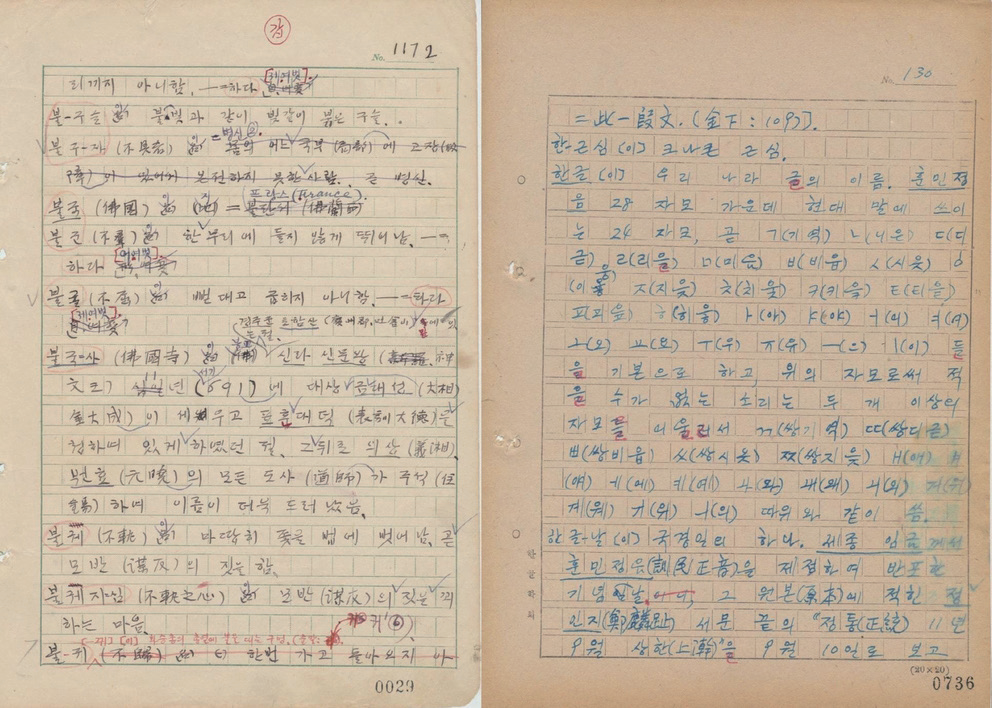 갑
No. 1172
리끼지 아니함. ──하다
불-구슬 불빛과 같이 빛같이 붉은 구슬.
불구-자 (不具者) 어느 국부 (局部) 에
온전하지 못한 사람. 곧 병신.
프랑스 (France).
불국 (佛國) =
불군 (不羣) 한 무리에 들지 않게 뛰어남. ──
하다
불굴 (不屈) 뻗대고 굽히지 아니함. ──하다
불국-사 (佛國寺) 신라 신문왕 (神
文王) 년 (691) 에 대상 김대성 (大相
金大成) 이 세우고 표훈대덕 (表訓大德) 을
청하여 있게 하였던 절. 그 뒤로 의상 (義湘),
원효 (元曉) 의 모든 도사 (道師) 가 주석 (住
錫) 하여 이름이 더욱 드러났음.
불궤 (不軌) 마땅히 좇을 법에 벗어남. 곧
모반 (謀反) 의 짓을 함.
불궤지심 (不軌之心) 모반 (謀反) 의 짓을 꾀
하는 마음.
불-귀 (不歸) 한번 가고 돌아오지 아
0029
No. 130
=此一段文. (金下: 109).
한-근심 [이] 크나큰 근심.
한글 [이] 우리 나라 글의 이름. 훈민정
음 28 자모 가운데 현대 말에 쓰이
는 24 자모, 곧 ㄱ(기역) ㄴ(니은) ㄷ(디
귿) ㄹ(리을) ㅁ(미음) ㅂ(비읍) ㅅ(시옷) ㅇ
(이응) ㅈ(지읒) ㅊ(치읓) ㅋ(키읔) ㅌ(티읕)
ㅍ(피읖) ㅎ(히읗) ㅏ(아) ㅑ(야) ㅓ(어) ㅕ(여)
ㅗ(오) ㅛ(요) ㅜ(우) ㅠ(유) ㅡ(으) ㅣ(이) 들
을 기본으로 하고, 위의 자모로써 적
을 수가 없는 소리는 두 개 이상의
자모를 어울러서 ㄲ(쌍기역) ㄸ(쌍디귿)
ㅃ(쌍비읍) ㅆ(쌍시옷) ㅉ(쌍지읒) ㅐ(애) ㅒ
(얘) ㅔ(에) ㅖ(예) ㅘ(와) ㅙ(왜) ㅚ(외) ㅝ(워)
ㅞ(웨) ㅟ(위) ㅢ(의) 따위와 같이 씀.
한글-날 [이] 국경일의 하나. 세종 임금께서
훈민정음(訓民正音)을 제정하여 반포한
기념날. 그 원본(原本)에 적힌 정
인지(鄭麟趾) 서문 끝의 "정통(正統) 11년
9월 상한(上澣)"을 9월 10일로 보고
한글학회
(20×20)
0736